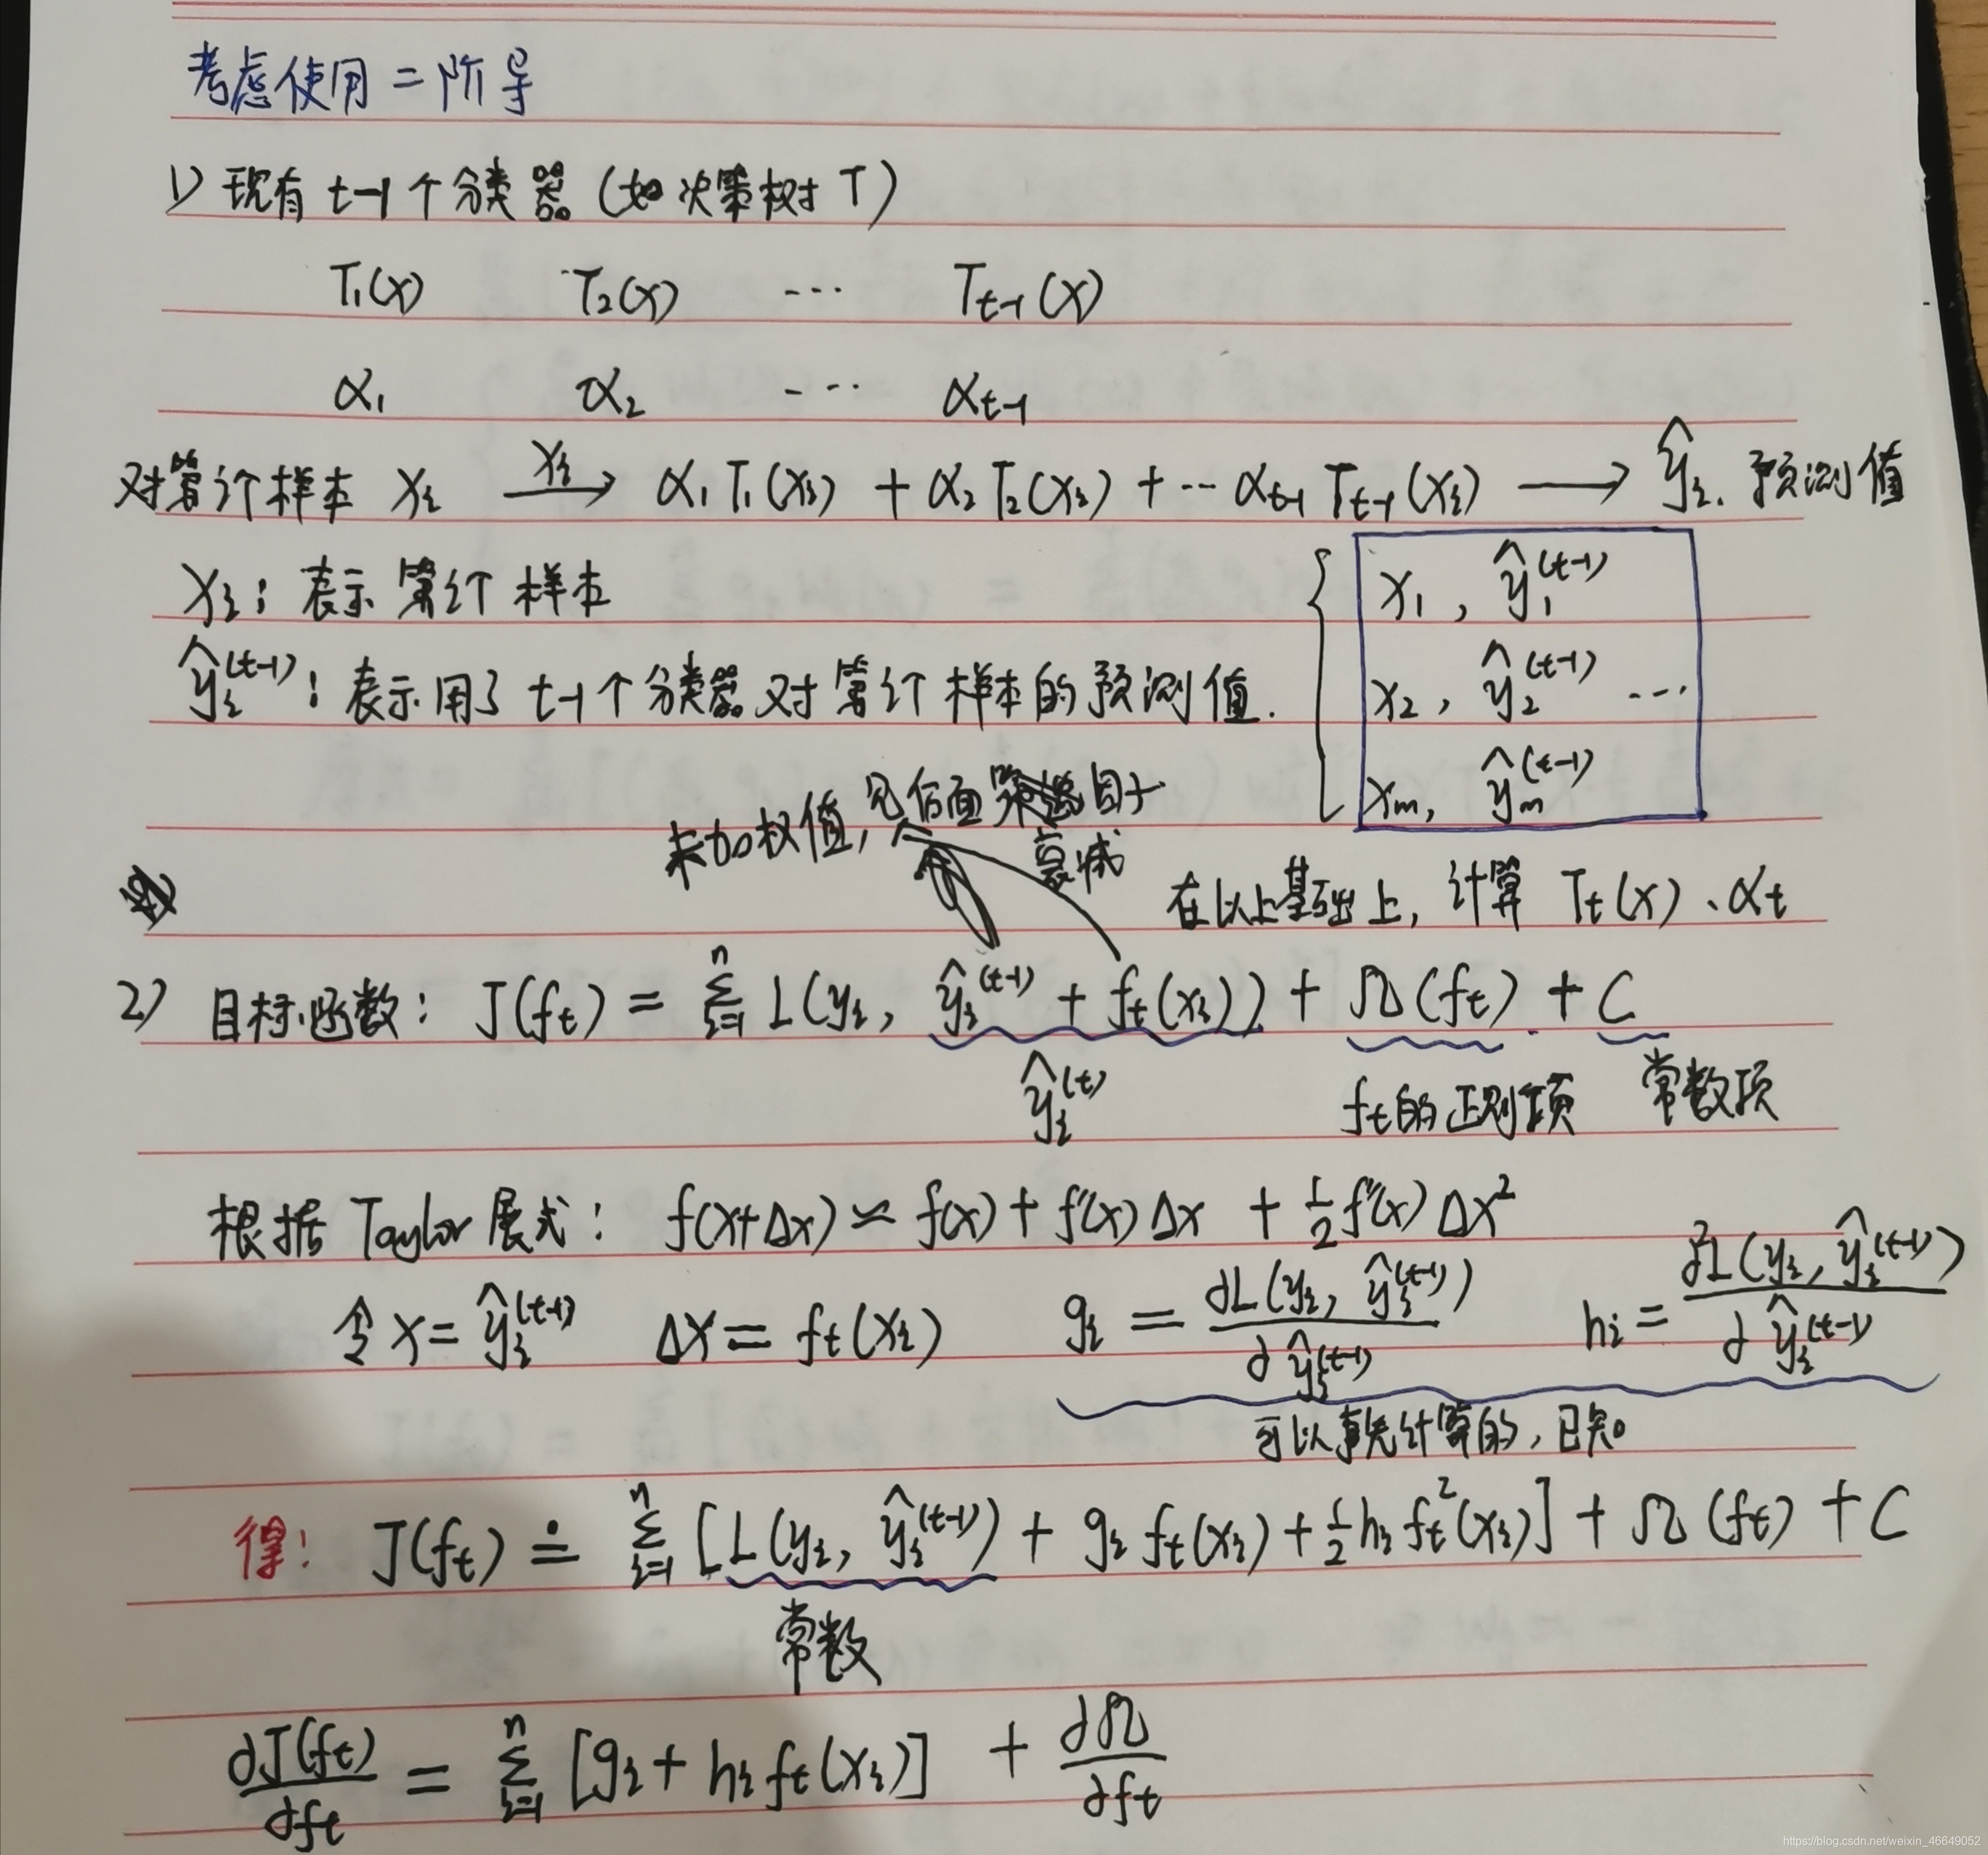 考虑使用二阶导
1) 现有 t-1个分类器 (如决策树 T)
T₁(x) T₂(x) ... Tₜ₋₁(x)
α₁ α₂ ... αₜ₋₁
对第i个样本 xᵢ —xᵢ→ α₁T₁(xᵢ) + α₂T₂(xᵢ) + ... αₜ₋₁Tₜ₋₁(xᵢ) ⟶ ŷᵢ. 预测值
xᵢ: 表示第i个样本
ŷᵢ⁽ᵗ⁻¹⁾: 表示用了 t-1个分类器对第i个样本的预测值.
x₁, ŷ₁⁽ᵗ⁻¹⁾
x₂, ŷ₂⁽ᵗ⁻¹⁾ ...
xₘ, ŷₘ⁽ᵗ⁻¹⁾
未加权值, 见后面
衰减
在以上基础上, 计算 Tₜ(x)、αₜ
2) 目标函数: J(fₜ) = Σᵢ₌₁ⁿ L(yᵢ, ŷᵢ⁽ᵗ⁻¹⁾ + fₜ(xᵢ)) + Ω(fₜ) + C
ŷᵢ⁽ᵗ⁾ fₜ的正则项 常数项
根据 Taylor 展式: f(x+Δx) ≃ f(x) + f'(x)Δx + ½f''(x)Δx²
令 x = ŷᵢ⁽ᵗ⁻¹⁾ Δx = fₜ(xᵢ) gᵢ = ∂L(yᵢ, ŷᵢ⁽ᵗ⁻¹⁾)/∂ŷᵢ⁽ᵗ⁻¹⁾ hᵢ = ∂²L(yᵢ, ŷᵢ⁽ᵗ⁻¹⁾)/∂ŷᵢ⁽ᵗ⁻¹⁾
可以事先计算的, 已知。
得: J(fₜ) ≐ Σᵢ₌₁ⁿ [L(yᵢ, ŷᵢ⁽ᵗ⁻¹⁾) + gᵢfₜ(xᵢ) + ½hᵢfₜ²(xᵢ)] + Ω(fₜ) + C
常数
∂J(fₜ)/∂fₜ = Σᵢ₌₁ⁿ [gᵢ + hᵢfₜ(xᵢ)] + ∂Ω/∂fₜ
https://blog.csdn.net/weixin_46649052